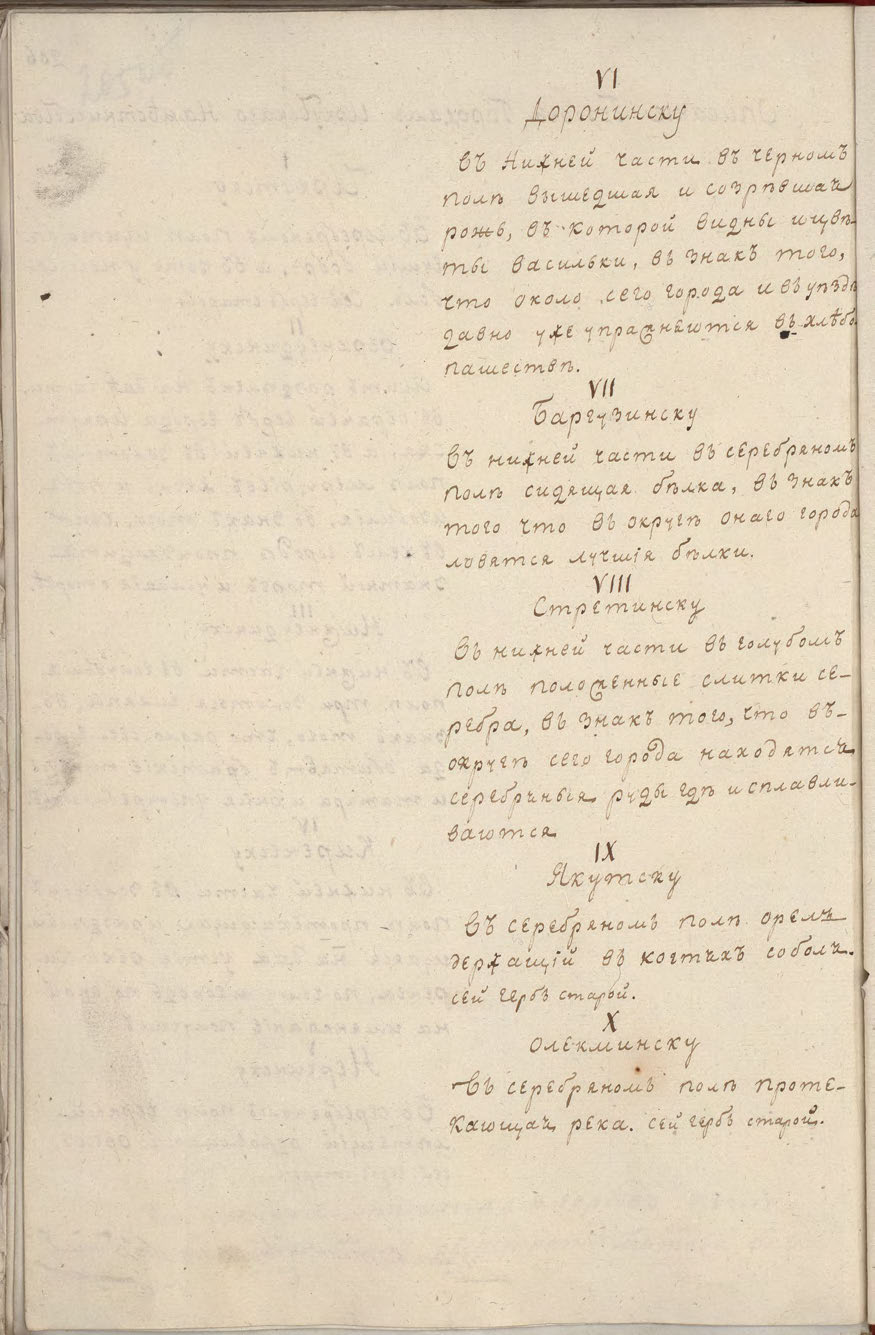 VI
Доронинску
Въ Нижней части въ черномъ
полѣ вышедшая и созрѣвшая
рожь, въ которой видны и цвѣ-
ты васильки, въ знакъ того,
что около сего города и въ уѣздѣ
давно уже упражнеются въ хлѣбо-
пашествѣ.
VII
Баргузинску
Въ нижней части въ серебряномъ
полѣ сидящая бѣлка, въ знакъ
того что въ округѣ онаго города
ловятся лучшія бѣлки.
VIII
Стретинску
Въ нижней части въ голубомъ
полѣ положенные слитки се-
ребра, въ знакъ того, что въ-
округѣ сего города находятся
серебряныя руды гдѣ и сплавли-
ваются
IX
Якутску
Въ серебряномъ полѣ орелъ
держащій въ когтяхъ соболя.
сей гербъ старой.
X
Олекминску
Въ серебряномъ полѣ проте-
кающая река. сей гербъ старой.